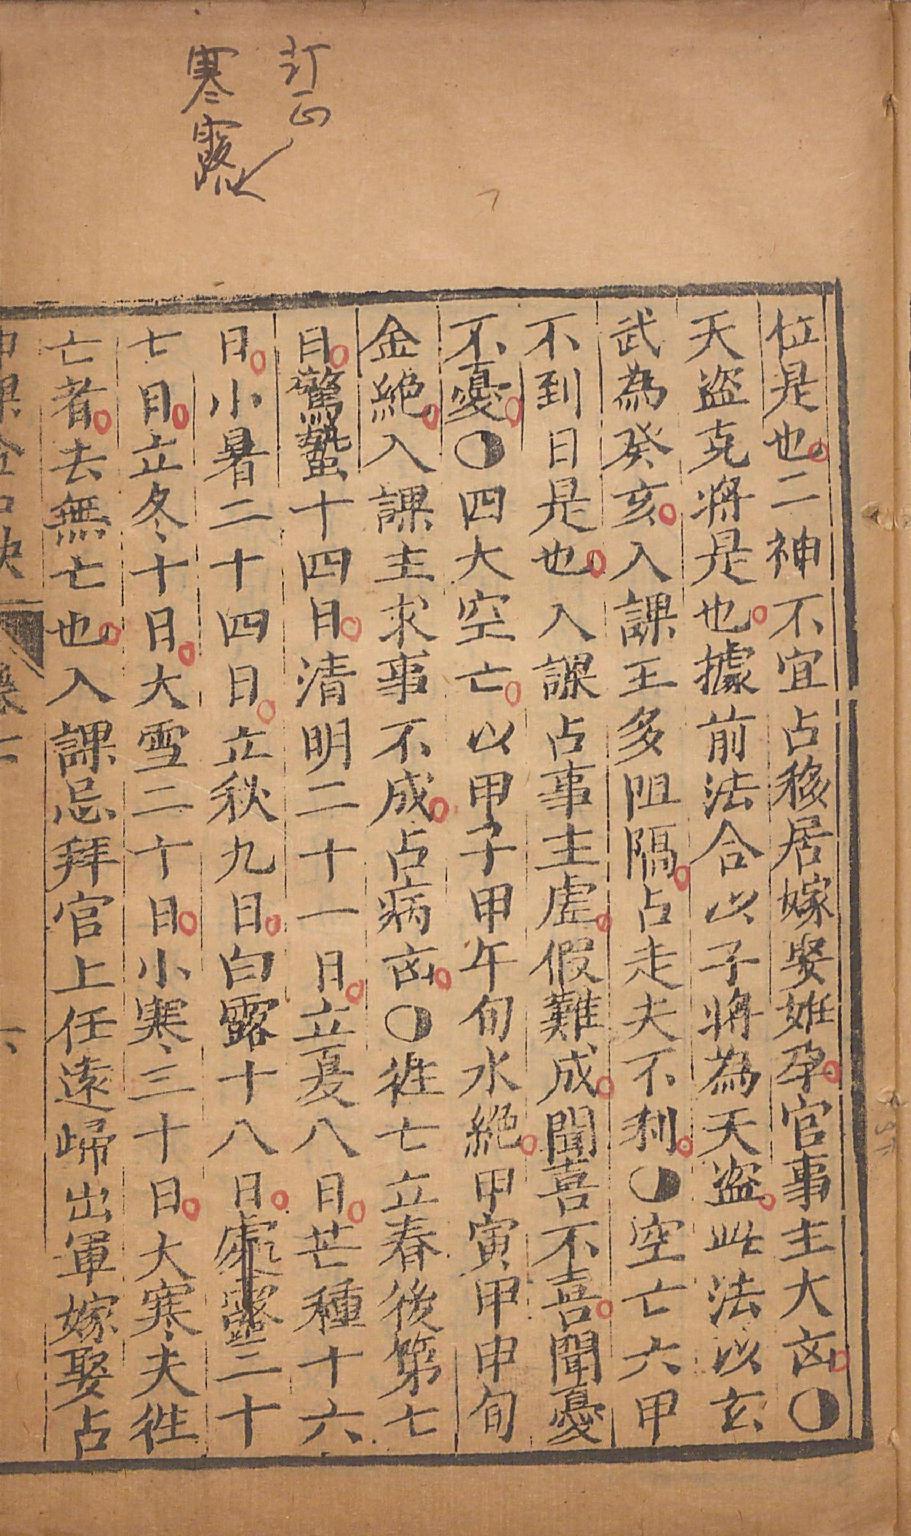 訂正
寒露
位是也二神不宜占移居嫁娶姙孕官事主大㓙
天盗克將是也據前法合以子將為天盗此法以玄
武為癸亥入課王多阻隔占走夫不利空亡六甲
不到日是也入課占事主虚假難成聞喜不喜聞憂
不憂四大空亡以甲子甲午旬水絶甲寅甲申旬
金絶入課主求事不成占病㓙徃七立春後第七
日驚蟄十四日清明二十一日立夏八日芒種十六
日小暑二十四日立秋九日白露十八日處露二十
七日立冬十日大雪二十日小寒三十日大寒夫徃
亡者去無亡也入課忌拜官上任遠歸出軍嫁娶占